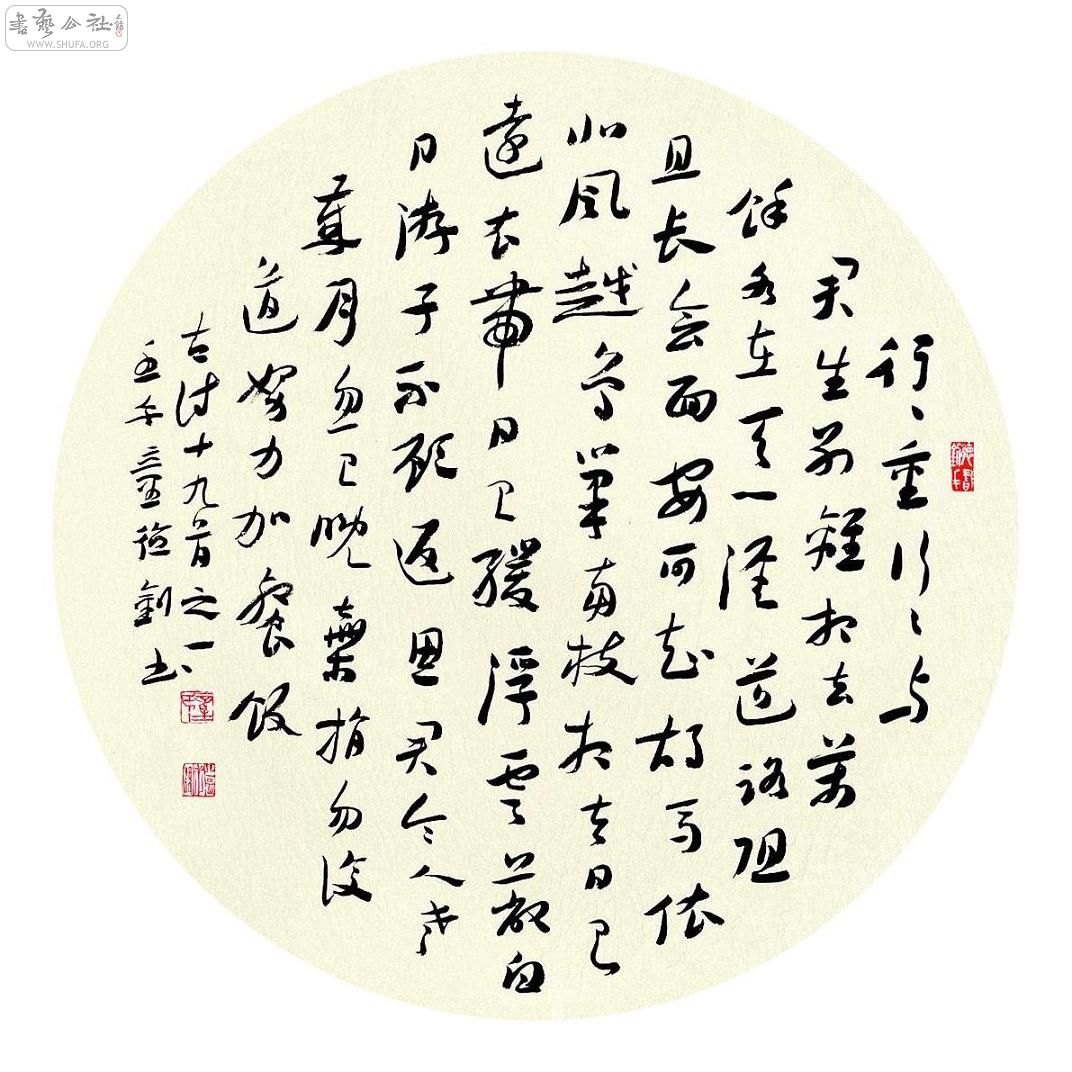 書藝公社
WWW.SHUFA.ORG
行、重行、与
君生别離相去萬
餘各在天一涯道路阻
且长会面安可知胡馬依
北風越鸟巢南枝相去日已
遠衣帶日已緩浮雲蔽白
日游子不顾返思君令人老
歲月忽已晚棄捐勿復
道努力加餐飯
古诗十九首之一
壬午德劍书